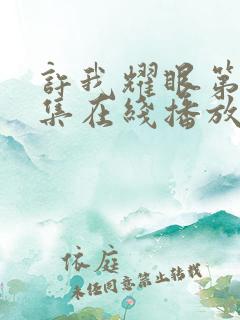 許我耀眼第
集在綫播放
依庭
未任同意禁止转载